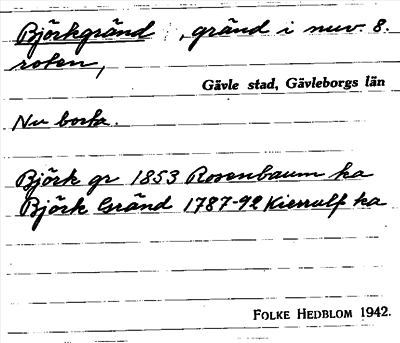 Björkgränd , gränd i nuv. 8.
roten,
Gävle stad, Gävleborgs län
Nu borta.
Björk gr 1853 Rosenbaum ka
Björk Gränd 1787-92 Kierrulf ka
FOLKE HEDBLOM 1942.